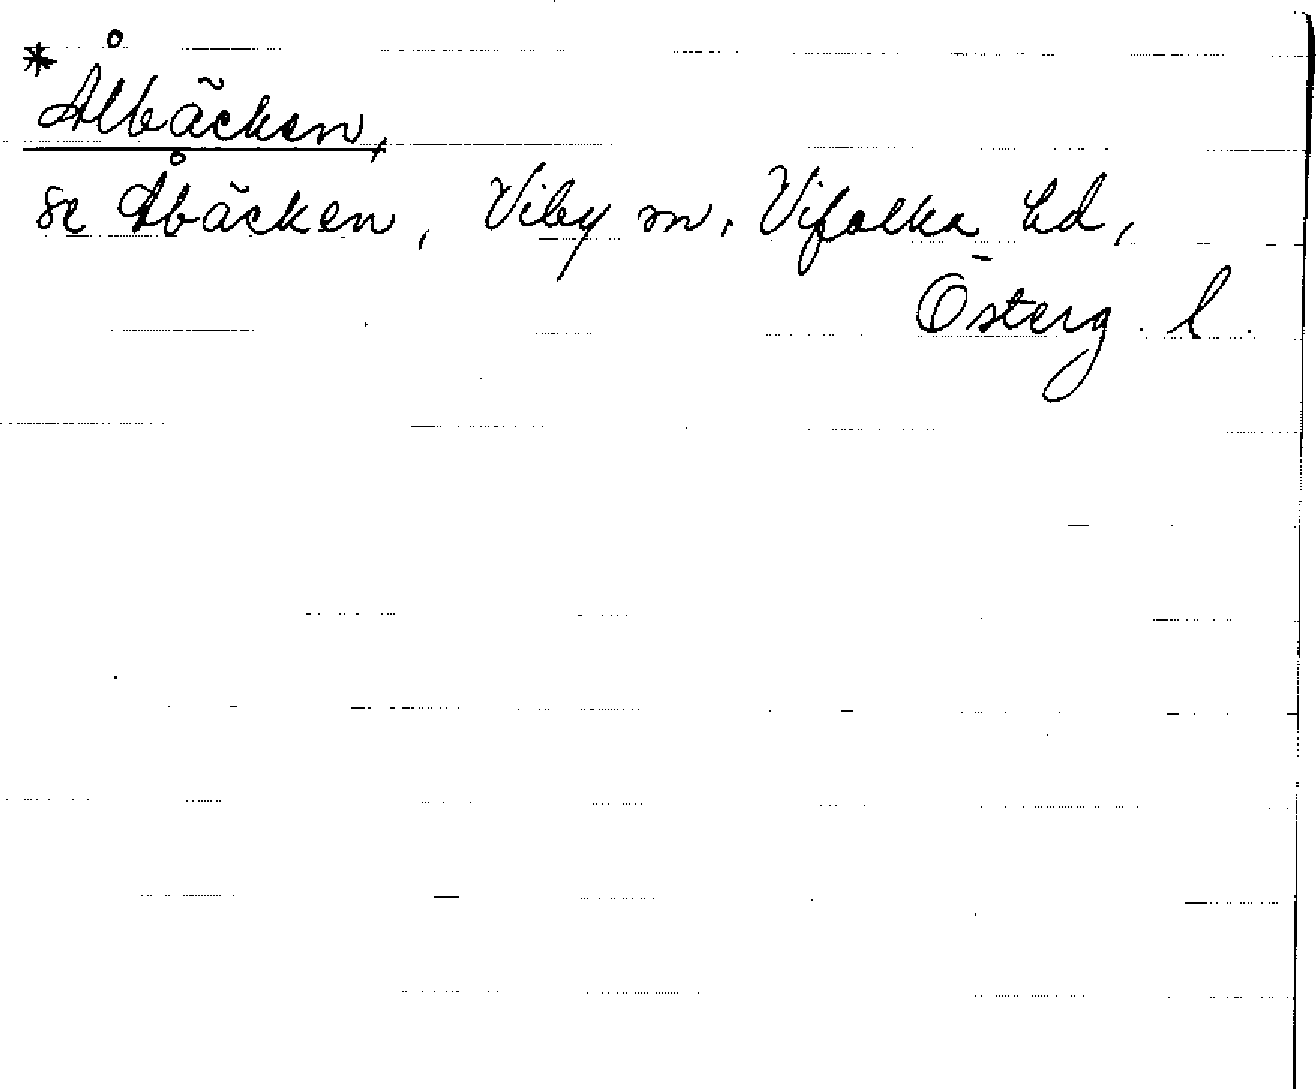 *Ålbäcken,
se Åbäcken, Viby sn, Vifolka hd,
Österg. l.